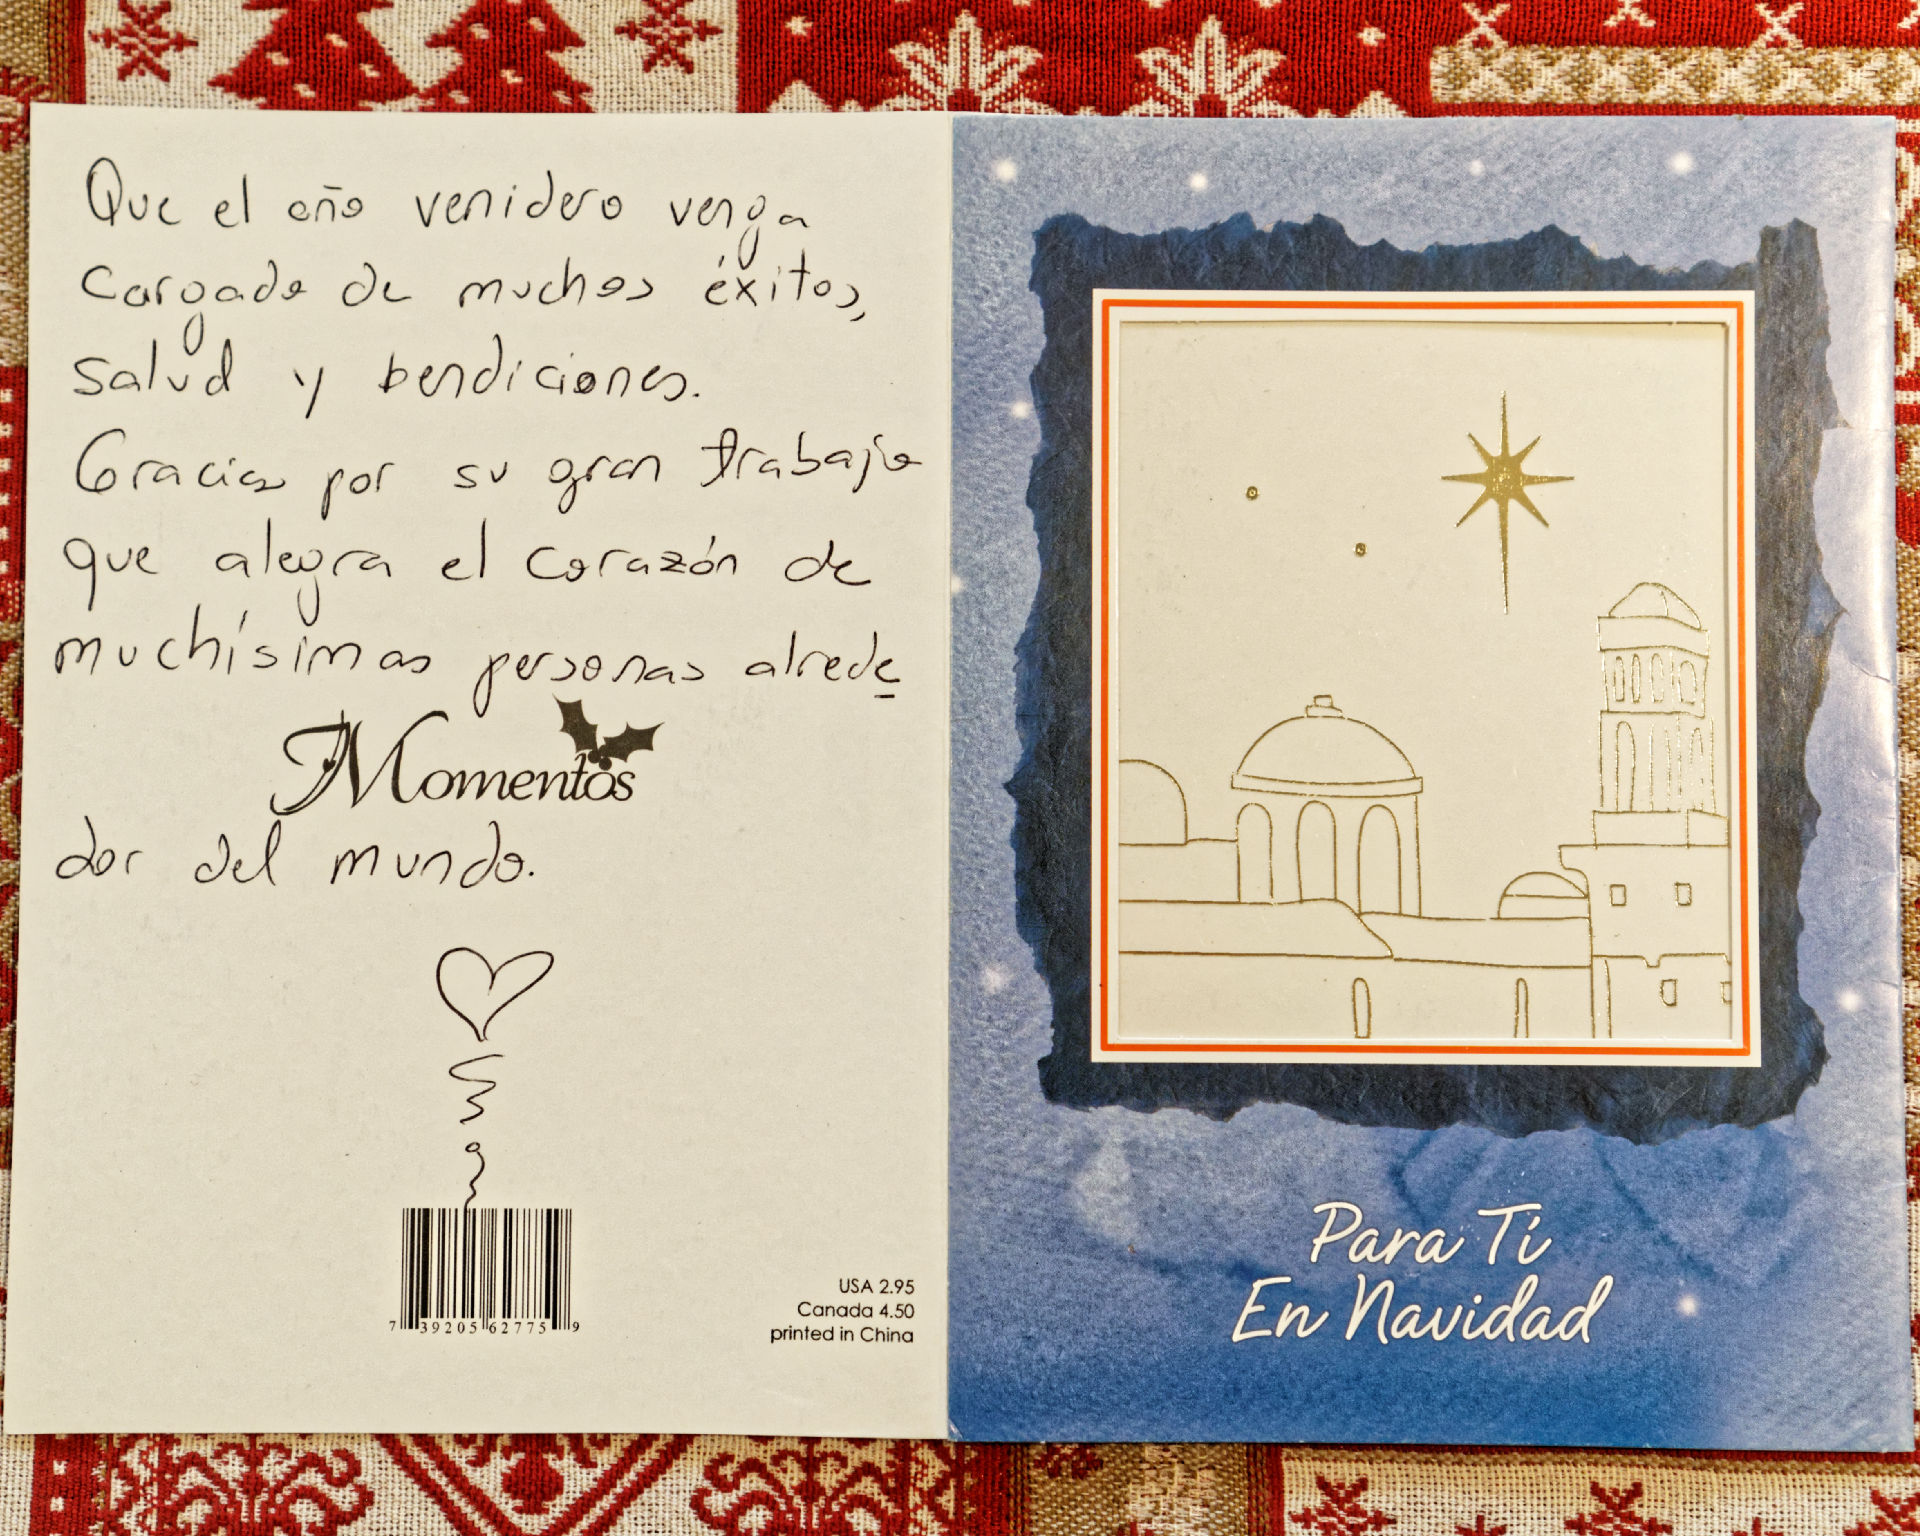 Que el año venidero venga
cargado de muchos éxitos,
salud y bendiciones.
Gracias por su gran trabajo
que alegra el corazón de
muchísimas personas alrede
Momentos
dor del mundo.
7 39205 62775 9
USA 2.95
Canada 4.50
printed in China
Para Ti
En Navidad